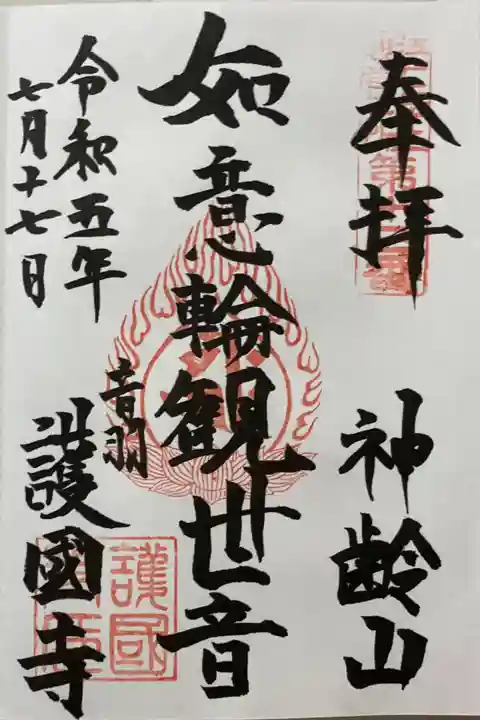 奉拝
神齢山
如意輪観世音
令和五年
七月十七日
音羽
護國寺
護國